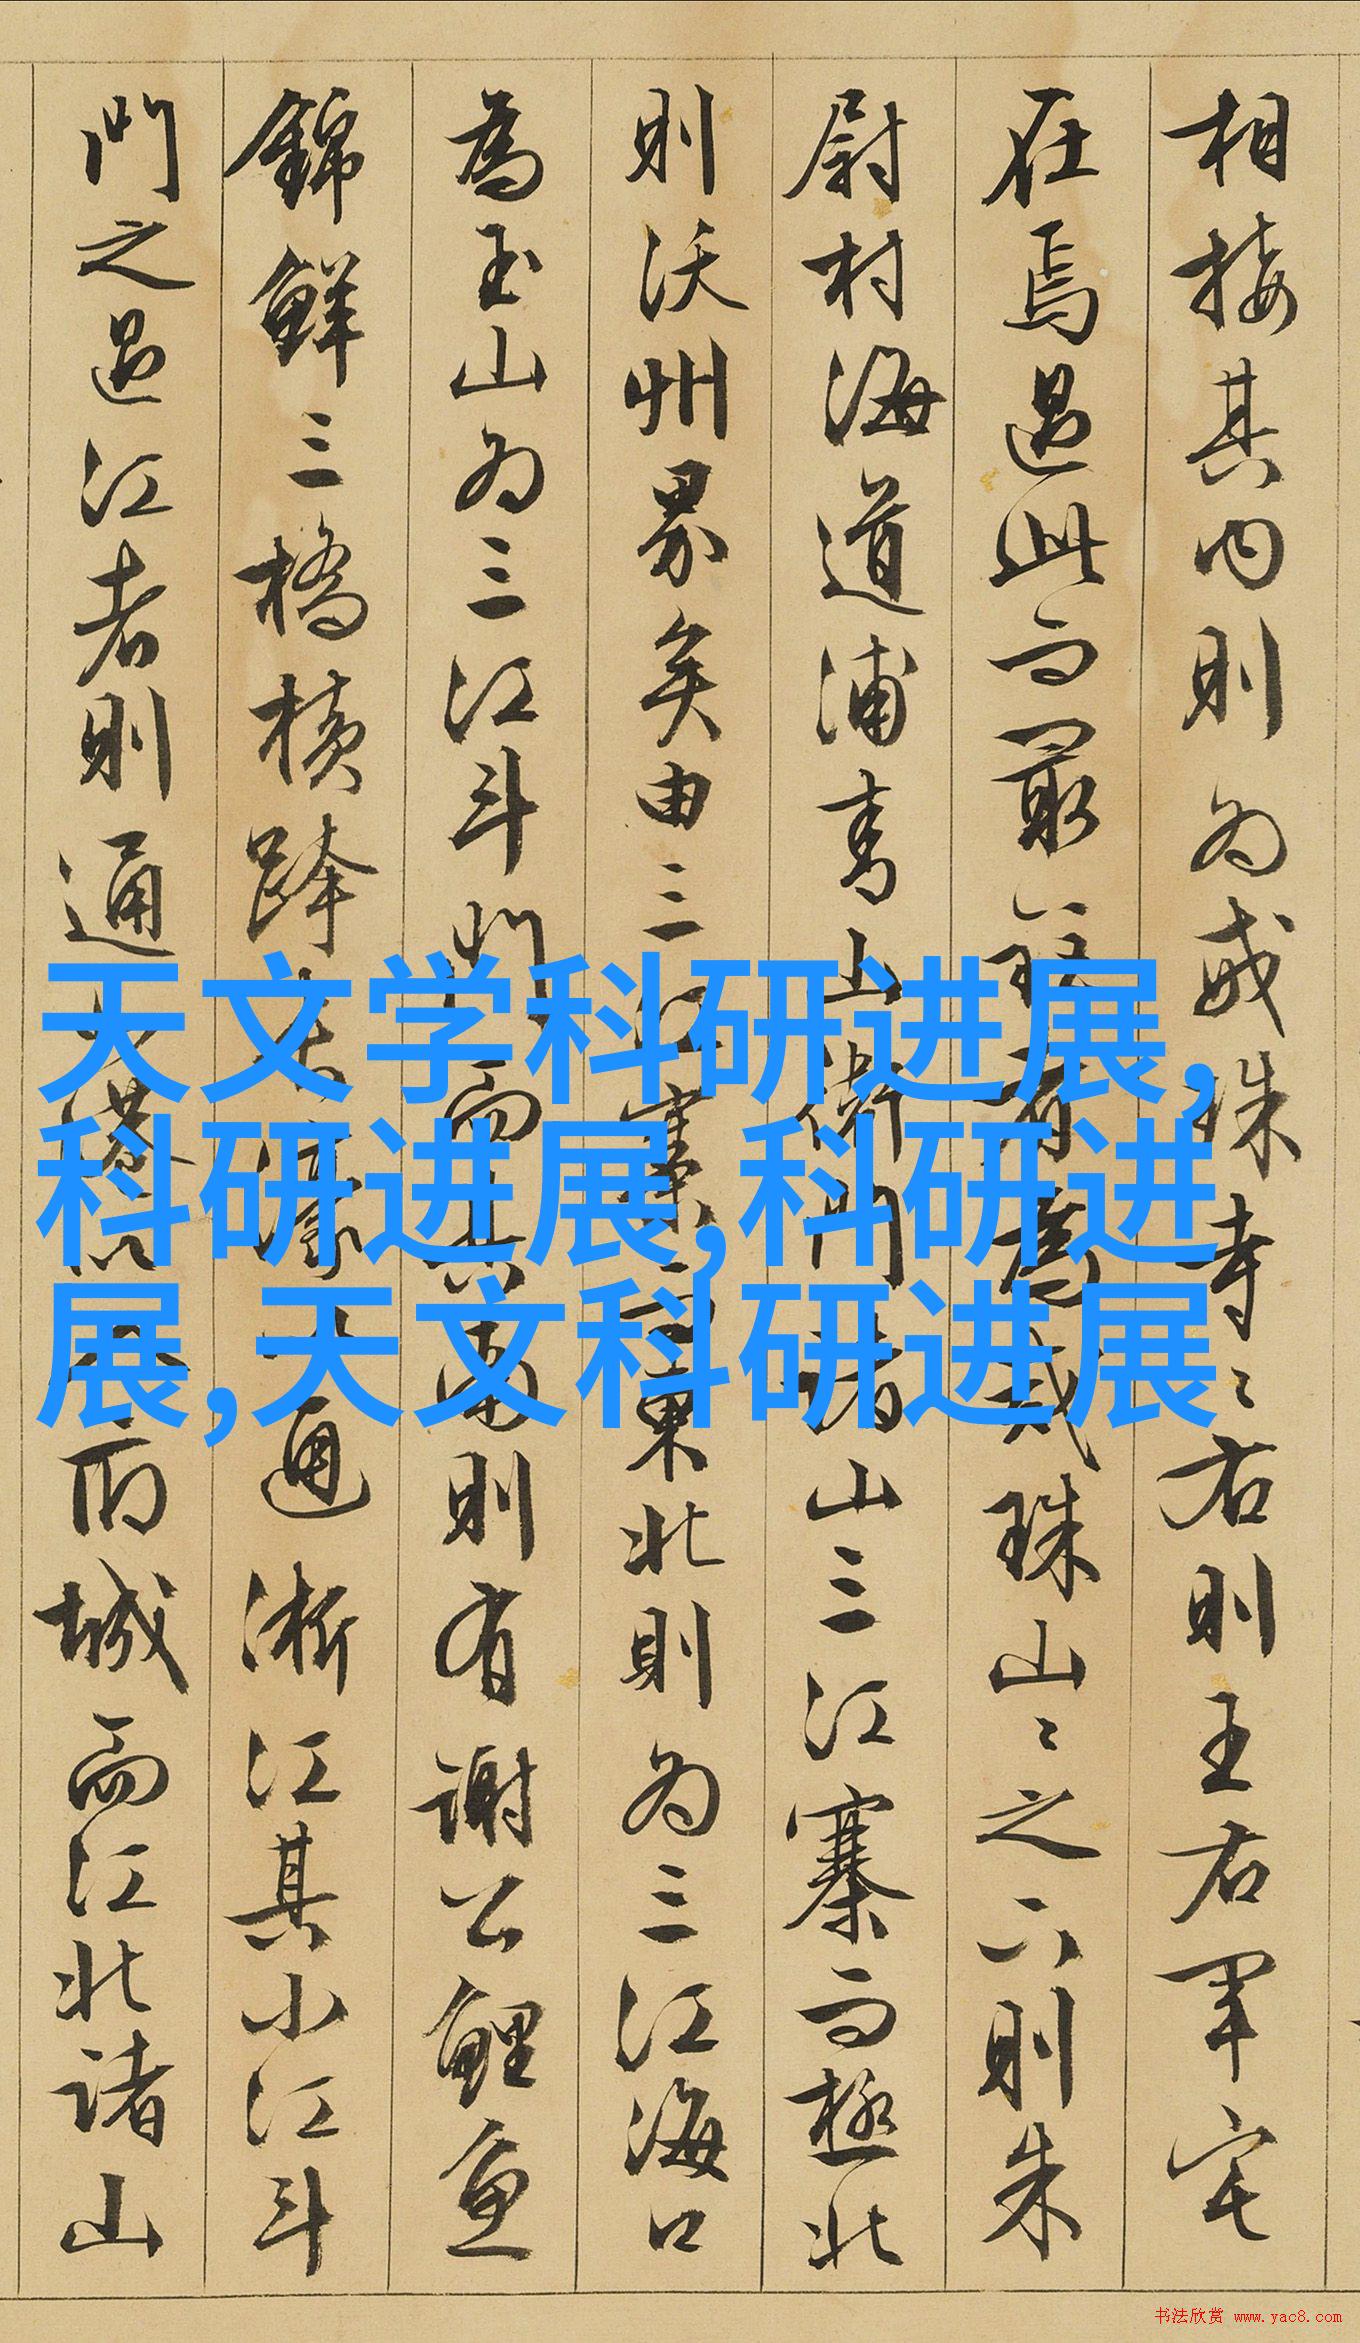 相接其内則为戒珠寺〻右則王右軍宅
在焉過此而最
有
戒珠山〻之六則朱
尉村海道浦青山
衛門諸山三江寨而極北
則沃州界矣由三江
寨
東北則为三江海口
為玉山为三江斗門
而其南則有謝公鯉魚
錦鮮三橋横跨
濠
通浙江其小江斗
門之過江者則通
府城而江北諸山
天文学科研进展,
科研进展,科研进
展,天文科研进展
书法欣赏 www.yac8.com